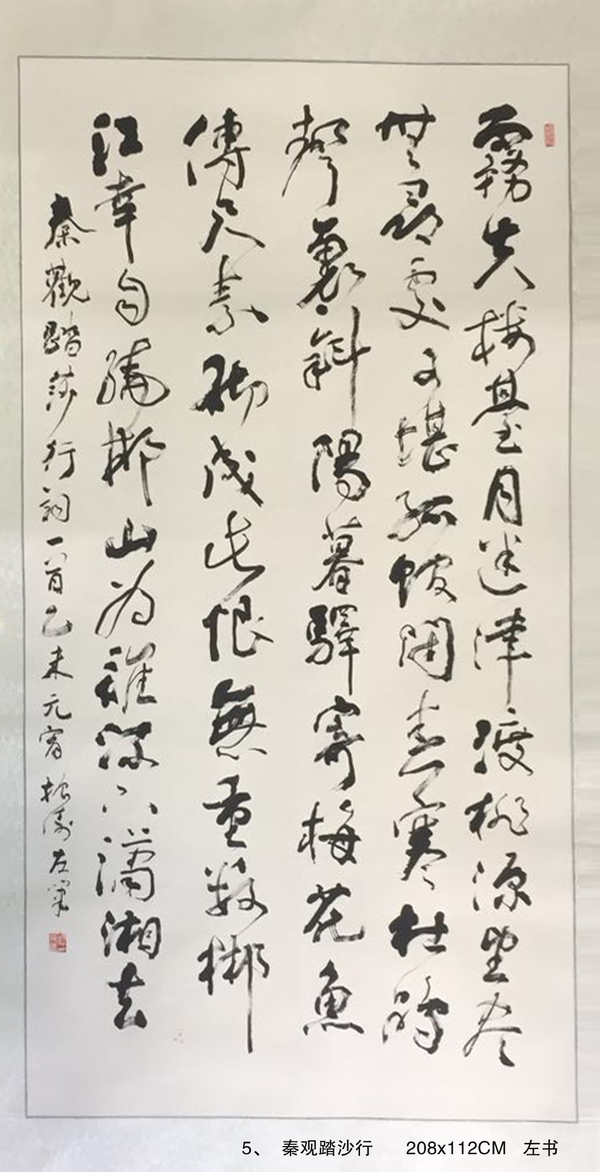 霧失樓臺月迷津渡桃源望尽
無尋處可堪孤館閉春寒杜鵑
聲裏斜陽暮驛寄梅花魚
傳尺素砌成此恨無重數郴
江幸自繞郴山為誰流下瀟湘去
秦觀踏莎行詞一首乙未元宵左筆
5、 秦观踏沙行 208x112CM 左书